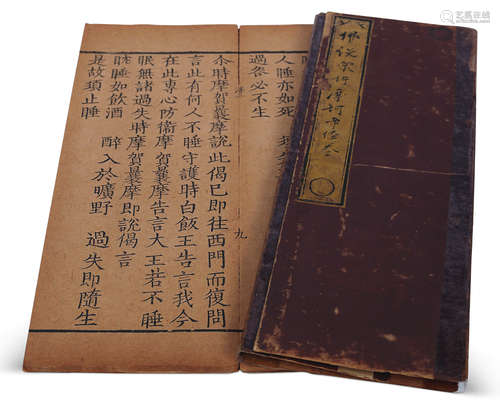 人睡亦如死
過咎必不生
尒時摩賀曩摩說此偈已即往西門而復問
言此有何人不睡守護時白飯王告言我今
在此專心防衛摩賀曩摩告言大王若不睡
眠無諸過失時摩賀曩摩即說偈言
睡如飲酒 醉入於曠野 過失即隨生
是故須止睡
九
佛說衆許摩訶帝經卷
艺狐在线